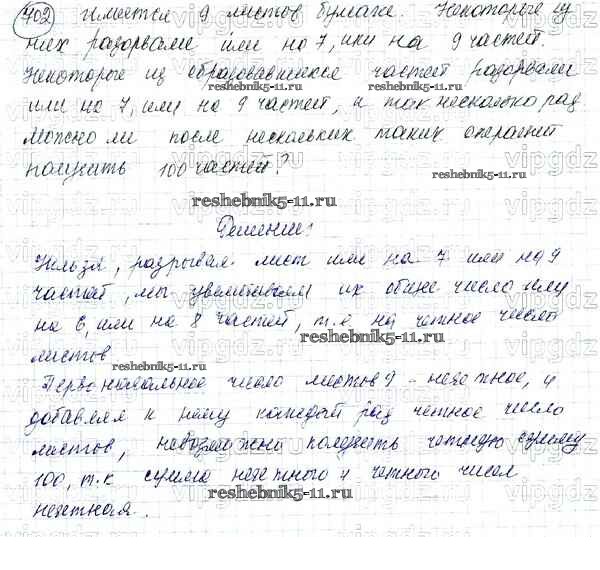 402 Имеется 9 листов бумаги. Некоторые из
них разорвали или на 7, или на 9 частей.
Некоторые из образовавшихся частей разорвали
или на 7, или на 9 частей, и так несколько раз
Можно ли после нескольких таких операций
получить 100 частей?
reshebnik5-11.ru
Решение:
Нельзя, разрывая лист или на 7 или на 9
частей, мы увеличиваем их общее число или
на 6, или на 8 частей, т.е на четное число
листов
Первоначальное число листов 9 - нечетное, и
добавляя к нему каждый раз четное число
листов, невозможно получить четную сумму
100, т.к сумма нечетного и четного чисел
нечетная.